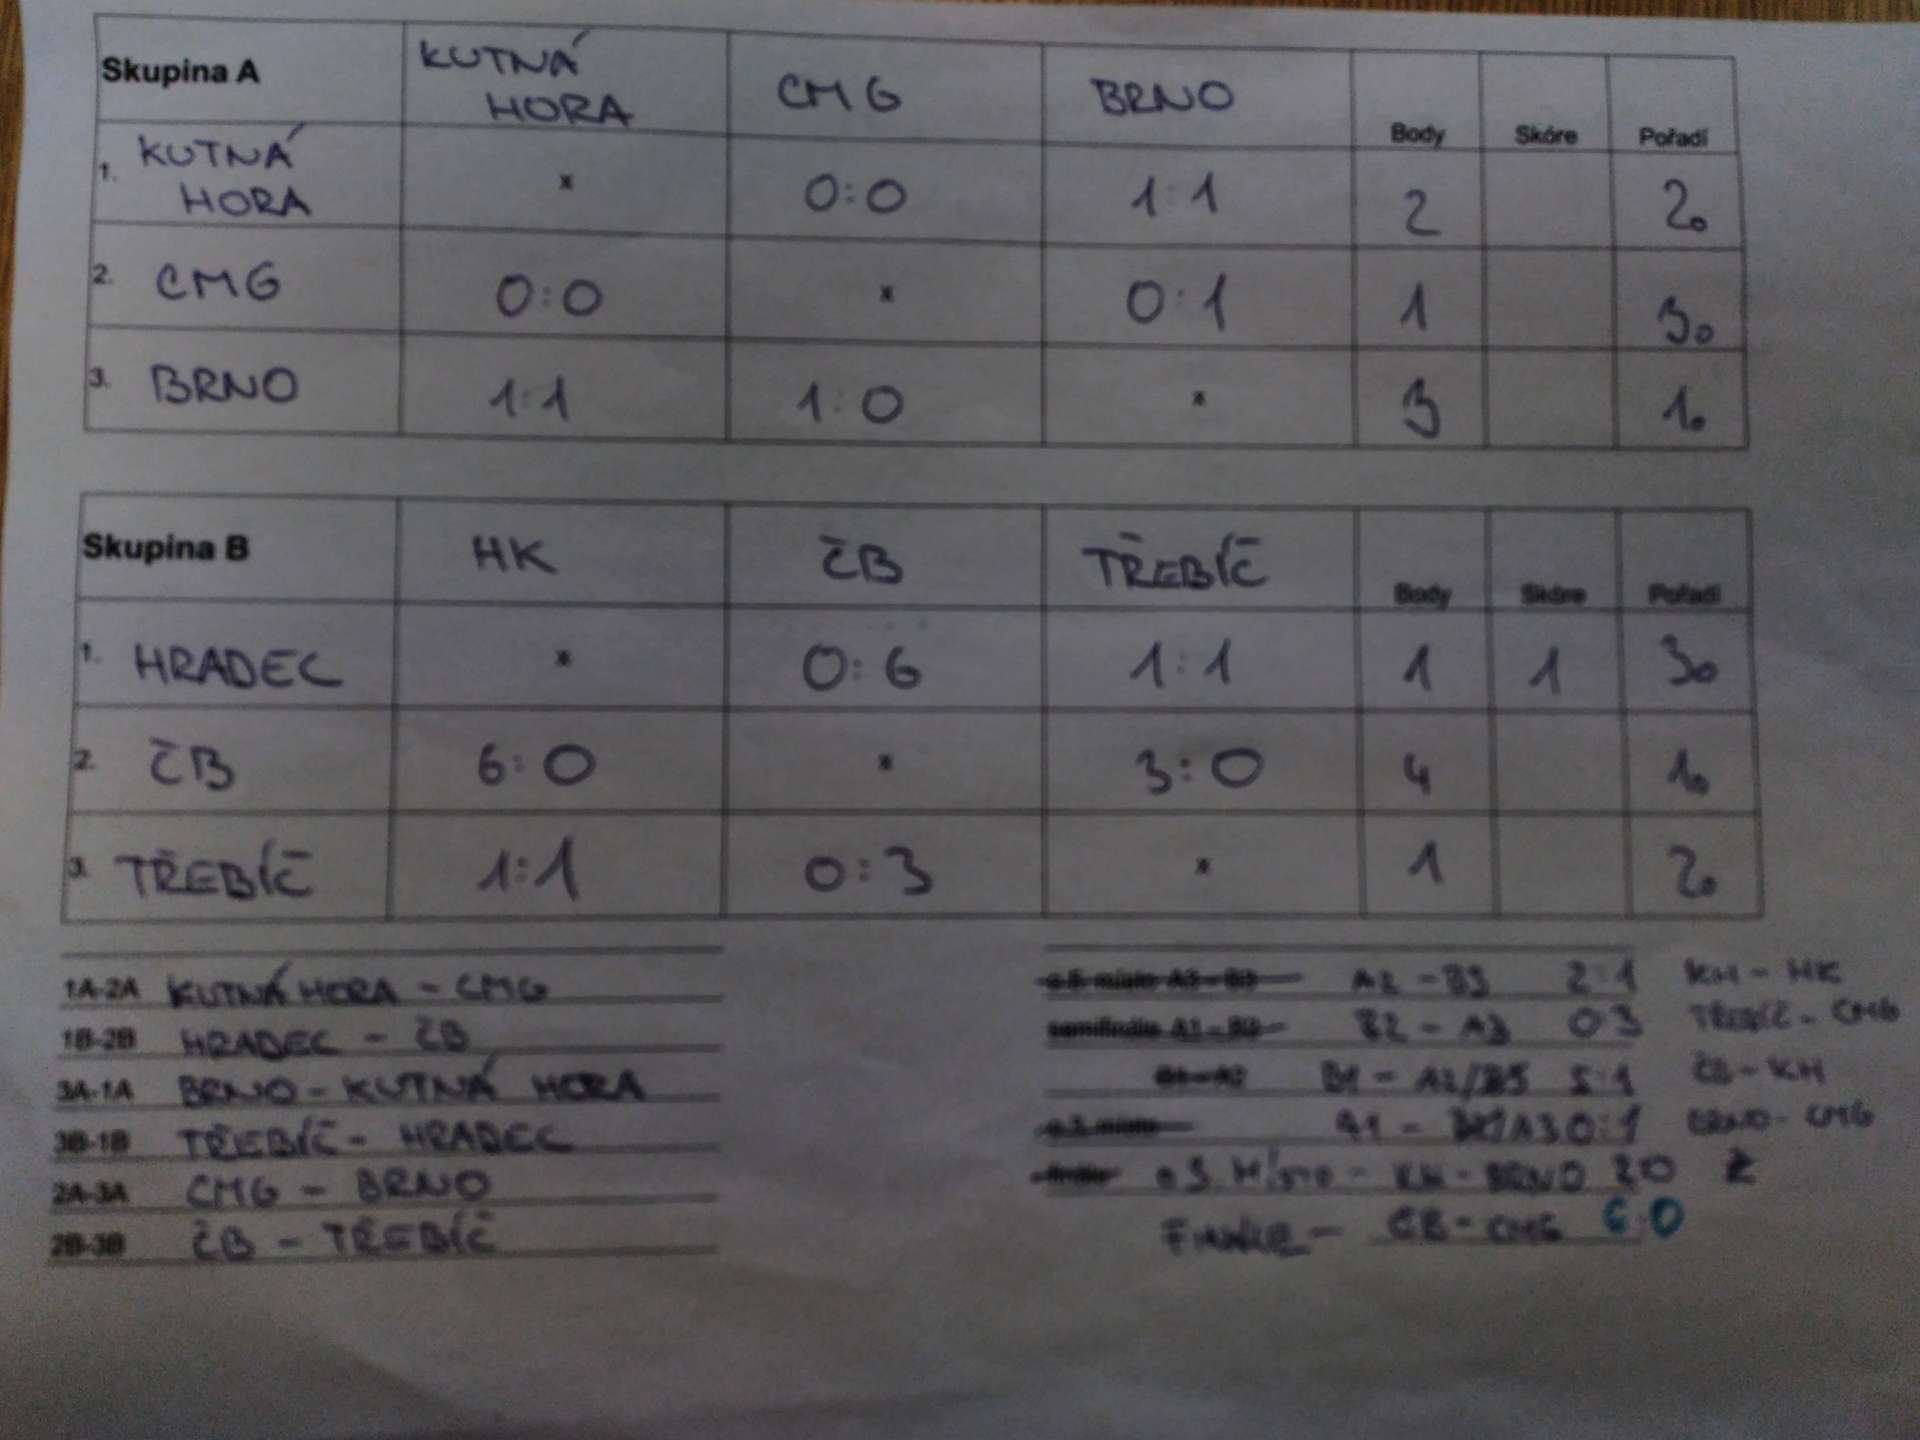 Skupina A KUTNÁ HORA CMG BRNO Body Skóre Pořadí
1. KUTNÁ HORA x 0:0 1:1 2 2.
2. CMG 0:0 x 0:1 1 3.
3. BRNO 1:1 1:0 x 3 1.
Skupina B HK ČB TŘEBÍČ Body Skóre Pořadí
1. HRADEC x 0:6 1:1 1 1 3.
2. ČB 6:0 x 3:0 4 1.
3. TŘEBÍČ 1:1 0:3 x 1 2.
1A-2A KUTNÁ HORA - CMG
1B-2B HRADEC - ČB
3A-1A BRNO - KUTNÁ HORA
3B-1B TŘEBÍČ - HRADEC
2A-3A CMG - BRNO
2B-3B ČB - TŘEBÍČ
A2 - B3 2:1 KH - HK
B2 - A3 0 3 TŘEBÍČ - CMG
B1 - 5:1 ČB - KH
A1 - 0:1 BRNO - CMG
o 3 MÍSTO - KH - BRNO 2 0
FINÁLE - ČB - CMG 6:0